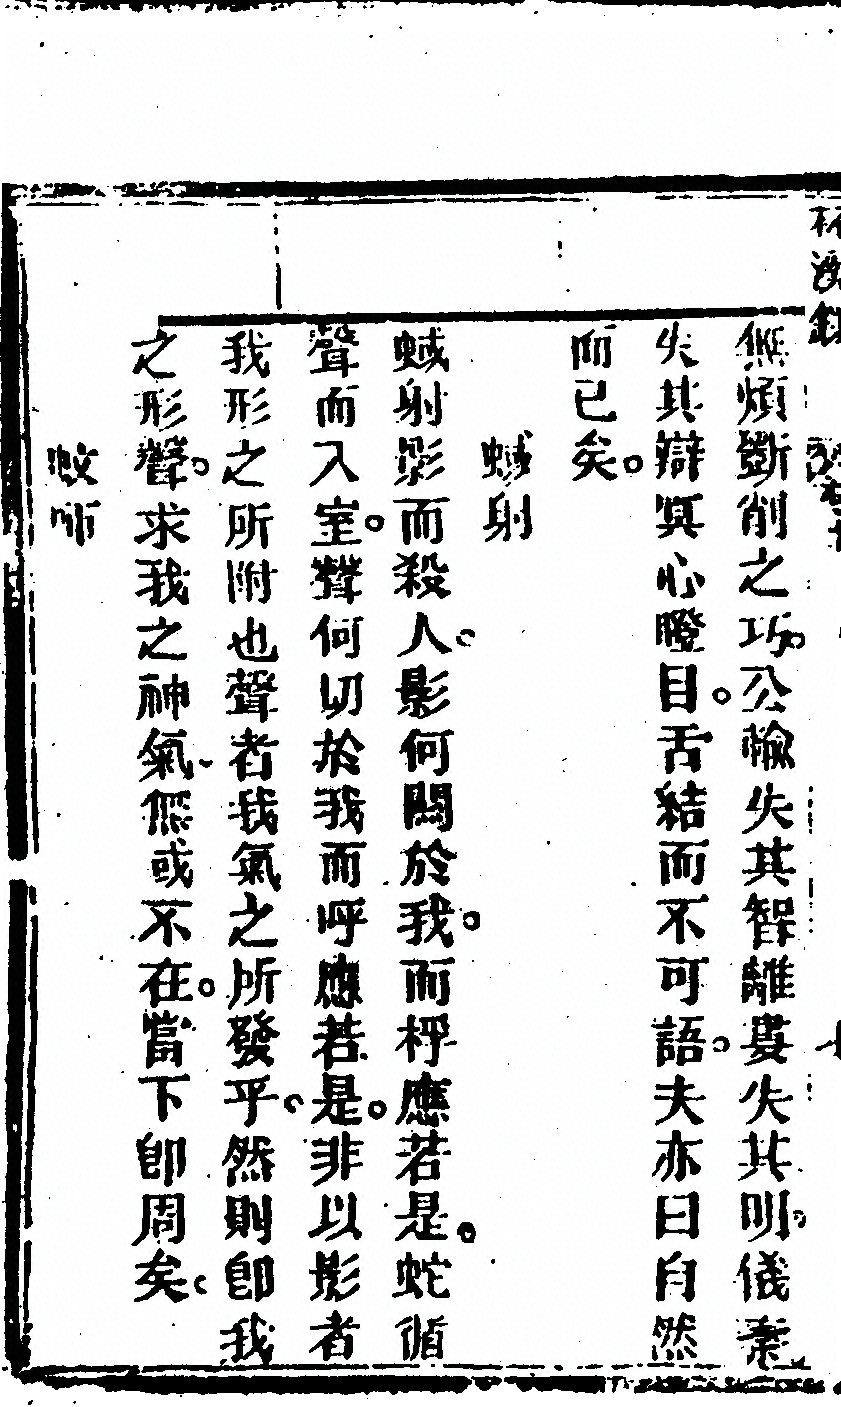 無煩斲削之巧公輸失其智離婁失其明儀秦
失其辯冥心瞪目舌結而不可語夫亦曰自然
而已矣
蜮射
蜮射影而殺人影何關於我而桴應若是蛇循
聲而入室聲何切於我而呼應若是非以影者
我形之所附也聲者我氣之所發乎然則卽我
之形聲求我之神氣無或不在當下卽周矣
蚊咂